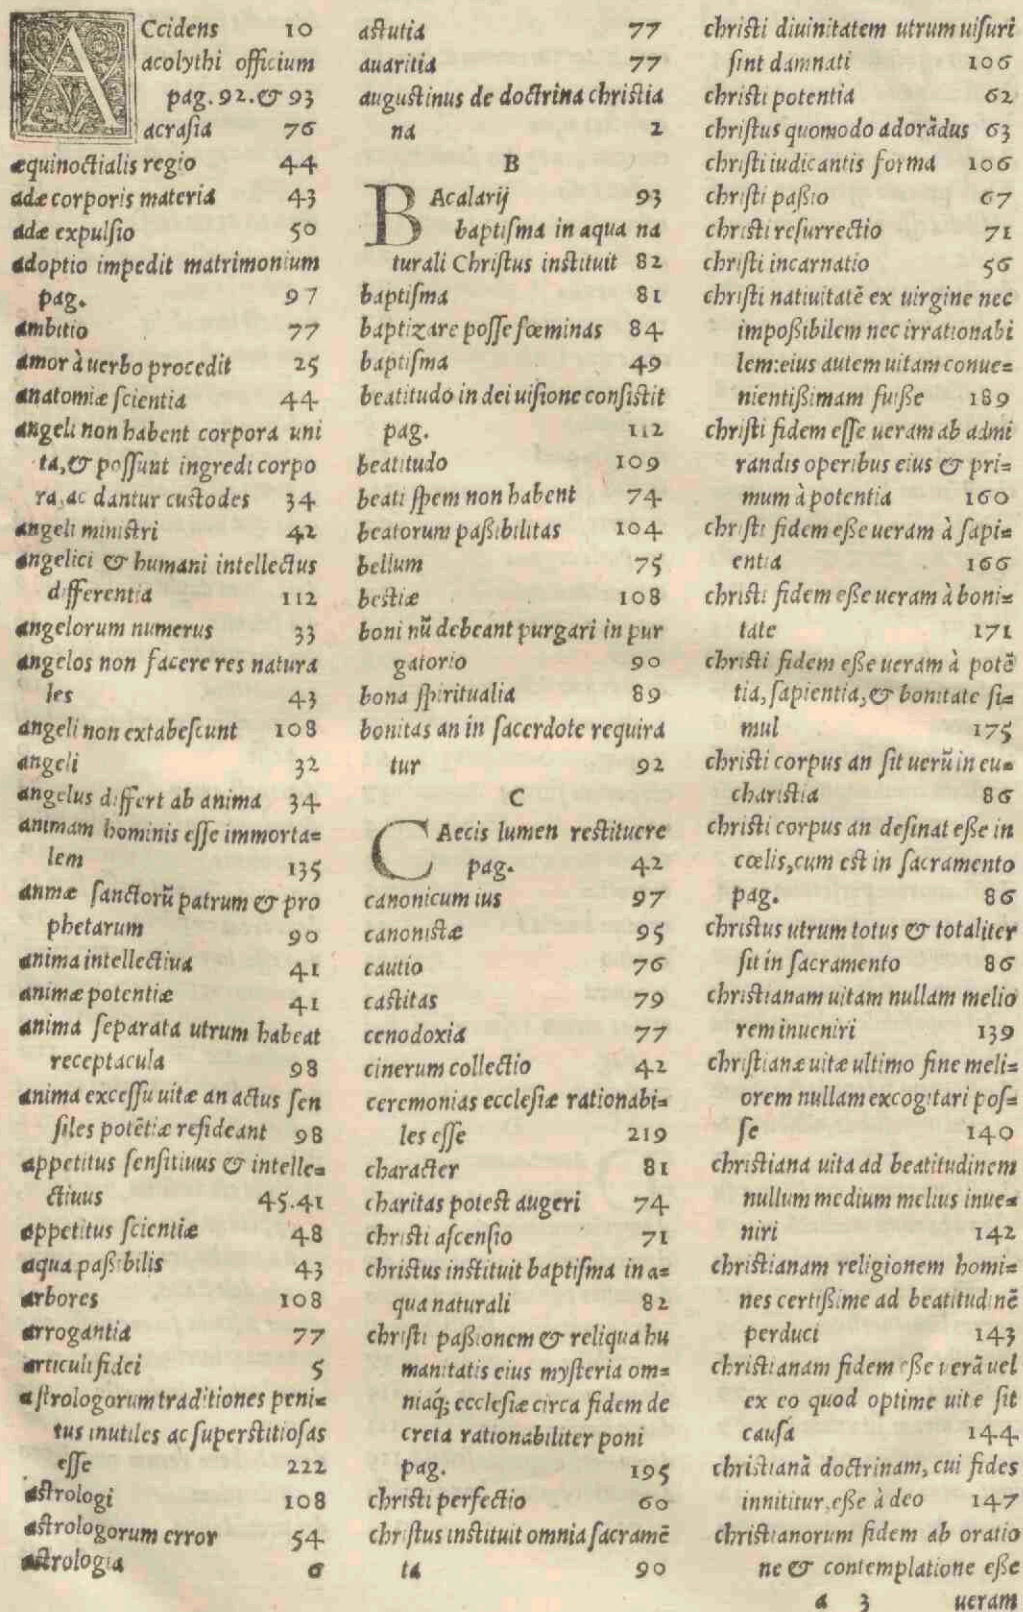 ACcidens 10
acolythi officium
pag. 92. & 93
acrasia 76
æquinoctialis regio 44
adæ corporis materia 43
adæ expulsio 50
adoptio impedit matrimonium
pag. 97
ambitio 77
amor à uerbo procedit 25
anatomiæ scientia 44
angeli non habent corpora uni
ta, & possunt ingredi corpo
ra, ac dantur custodes 34
angeli ministri 42
angelici & humani intellectus
differentia 112
angelorum numerus 33
angelos non facere res natura
les 43
angeli non extabescunt 108
angeli 32
angelus differt ab anima 34
animam hominis esse immorta=
lem 135
anmæ sanctorũ patrum & pro
phetarum 90
anima intellectiua 41
animæ potentiæ 41
anima separata utrum habeat
receptacula 98
anima excessu uitæ an actus sen
siles potẽtiæ resideant 98
appetitus sensitiuus & intelle=
ctiuus 45.41
appetitus scientiæ 48
aqua paßibilis 43
arbores 108
arrogantia 77
articuli fidei 5
astrologorum traditiones peni=
tus inutiles ac superstitiosas
esse 222
astrologi 108
astrologorum error 54
astrologia 6
astutia 77
auaritia 77
augustinus de doctrina christia
na 2
B
BAcalarij 93
baptisma in aqua na
turali Christus instituit 82
baptisma 81
baptizare posse fœminas 84
baptisma 49
beatitudo in dei uisione consistit
pag. 112
beatitudo 109
beati spem non habent 74
beatorum paßibilitas 104
bellum 75
bestiæ 108
boni nũ debeant purgari in pur
gatorio 90
bona spiritualia 89
bonitas an in sacerdote requira
tur 92
C
CAecis lumen restituere
pag. 42
canonicum ius 97
canonistæ 95
cautio 76
castitas 79
cenodoxia 77
cinerum collectio 42
ceremonias ecclesiæ rationabi=
les esse 219
character 81
charitas potest augeri 74
christi ascensio 71
christus instituit baptisma in a=
qua naturali 82
christi paßionem & reliqua hu
manitatis eius mysteria om=
niaq́; ecclesiæ circa fidem de
creta rationabiliter poni
pag. 195
christi perfectio 60
christus instituit omnia sacramẽ
ta 90
christi diuinitatem utrum uisuri
sint damnati 106
christi potentia 62
christus quomodo adorãdus 63
christi iudicantis forma 106
christi paßio 67
christi resurrectio 71
christi incarnatio 56
christi natiuitatẽ ex uirgine nec
impoßibilem nec irrationabi
lem: eius autem uitam conue=
nientißimam fuiße 189
christi fidem esse ueram ab admi
randis operibus eius & pri=
mum à potentia 160
christi fidem eße ueram à sapi=
entia 166
christi fidem eße ueram à boni=
tate 171
christi fidem eße ueram à potẽ
tia, sapientia, & bonitate si=
mul 175
christi corpus an sit uerũ in eu=
charistia 86
christi corpus an desinat eße in
cœlis, cum est in sacramento
pag. 86
christus utrum totus & totaliter
sit in sacramento 86
christianam uitam nullam melio
rem inueniri 139
christianæ uitæ ultimo fine meli=
orem nullam excogitari pos=
se 140
christiana uita ad beatitudinem
nullum medium melius inue=
niri 142
christianam religionem homi=
nes certißime ad beatitudinẽ
perduci 143
christianam fidem eße verã uel
ex eo quod optime uite sit
causa 144
christianã doctrinam, cui fides
innititur, eße à deo 147
christianorum fidem ab oratio
ne & contemplatione eße
a 3 ueram